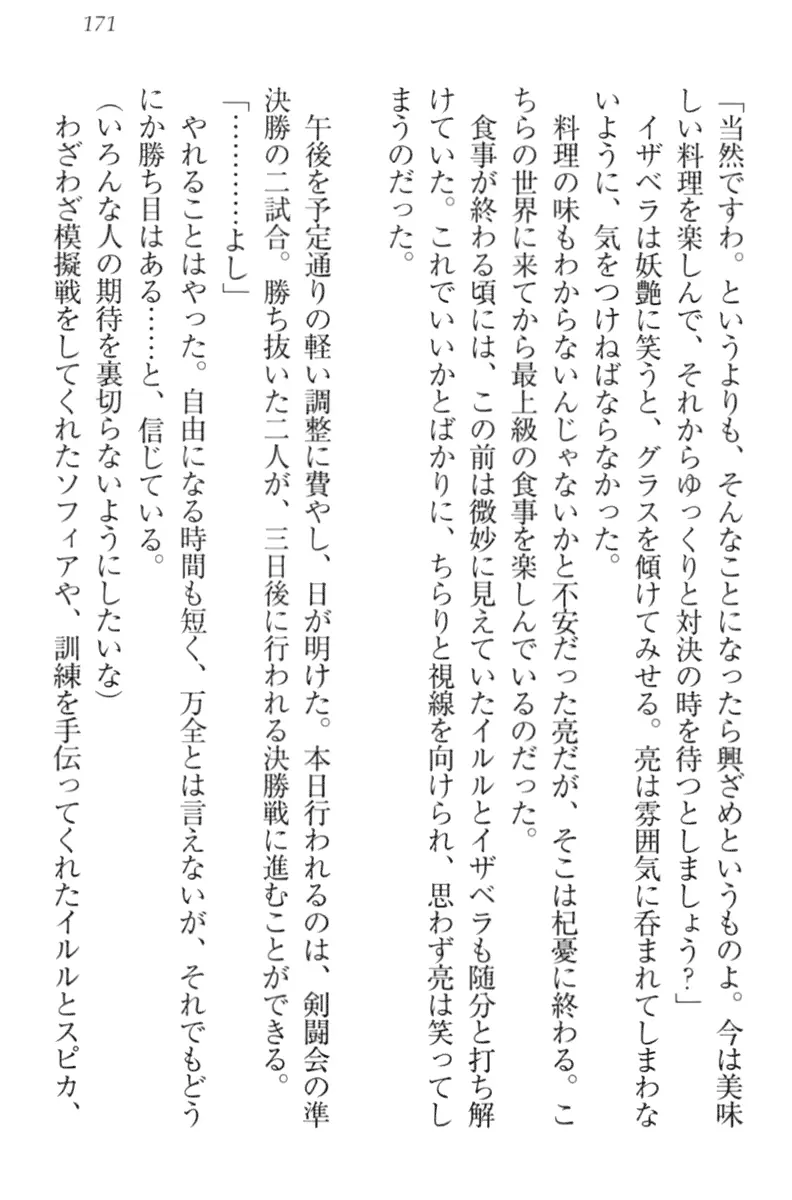 171
「当然ですわ。というよりも、そんなことになったら興ざめというものよ。今は美味
しい料理を楽しんで、それからゆっくりと対決の時を待つとしましょう?」
イザベラは妖艶に笑うと、グラスを傾けてみせる。亮は雰囲気に呑まれてしまわな
いように、気をつけねばならなかった。
料理の味もわからないんじゃないかと不安だった亮だが、そこは杞憂に終わる。こ
ちらの世界に来てから最上級の食事を楽しんでいるのだった。
食事が終わる頃には、この前は微妙に見えていたイルルとイザベラも随分と打ち解
けていた。これでいいかとばかりに、ちらりと視線を向けられ、思わず亮は笑ってし
まうのだった。
午後を予定通りの軽い調整に費やし、日が明けた。本日行われるのは、剣闘会の準
決勝の二試合。勝ち抜いた二人が、三日後に行われる決勝戦に進むことができる。
「…………よし」
やれることはやった。自由になる時間も短く、万全とは言えないが、それでもどう
にか勝ち目はある……と、信じている。
(いろんな人の期待を裏切らないようにしたいな)
わざわざ模擬戦をしてくれたソフィアや、訓練を手伝ってくれたイルルとスピカ、